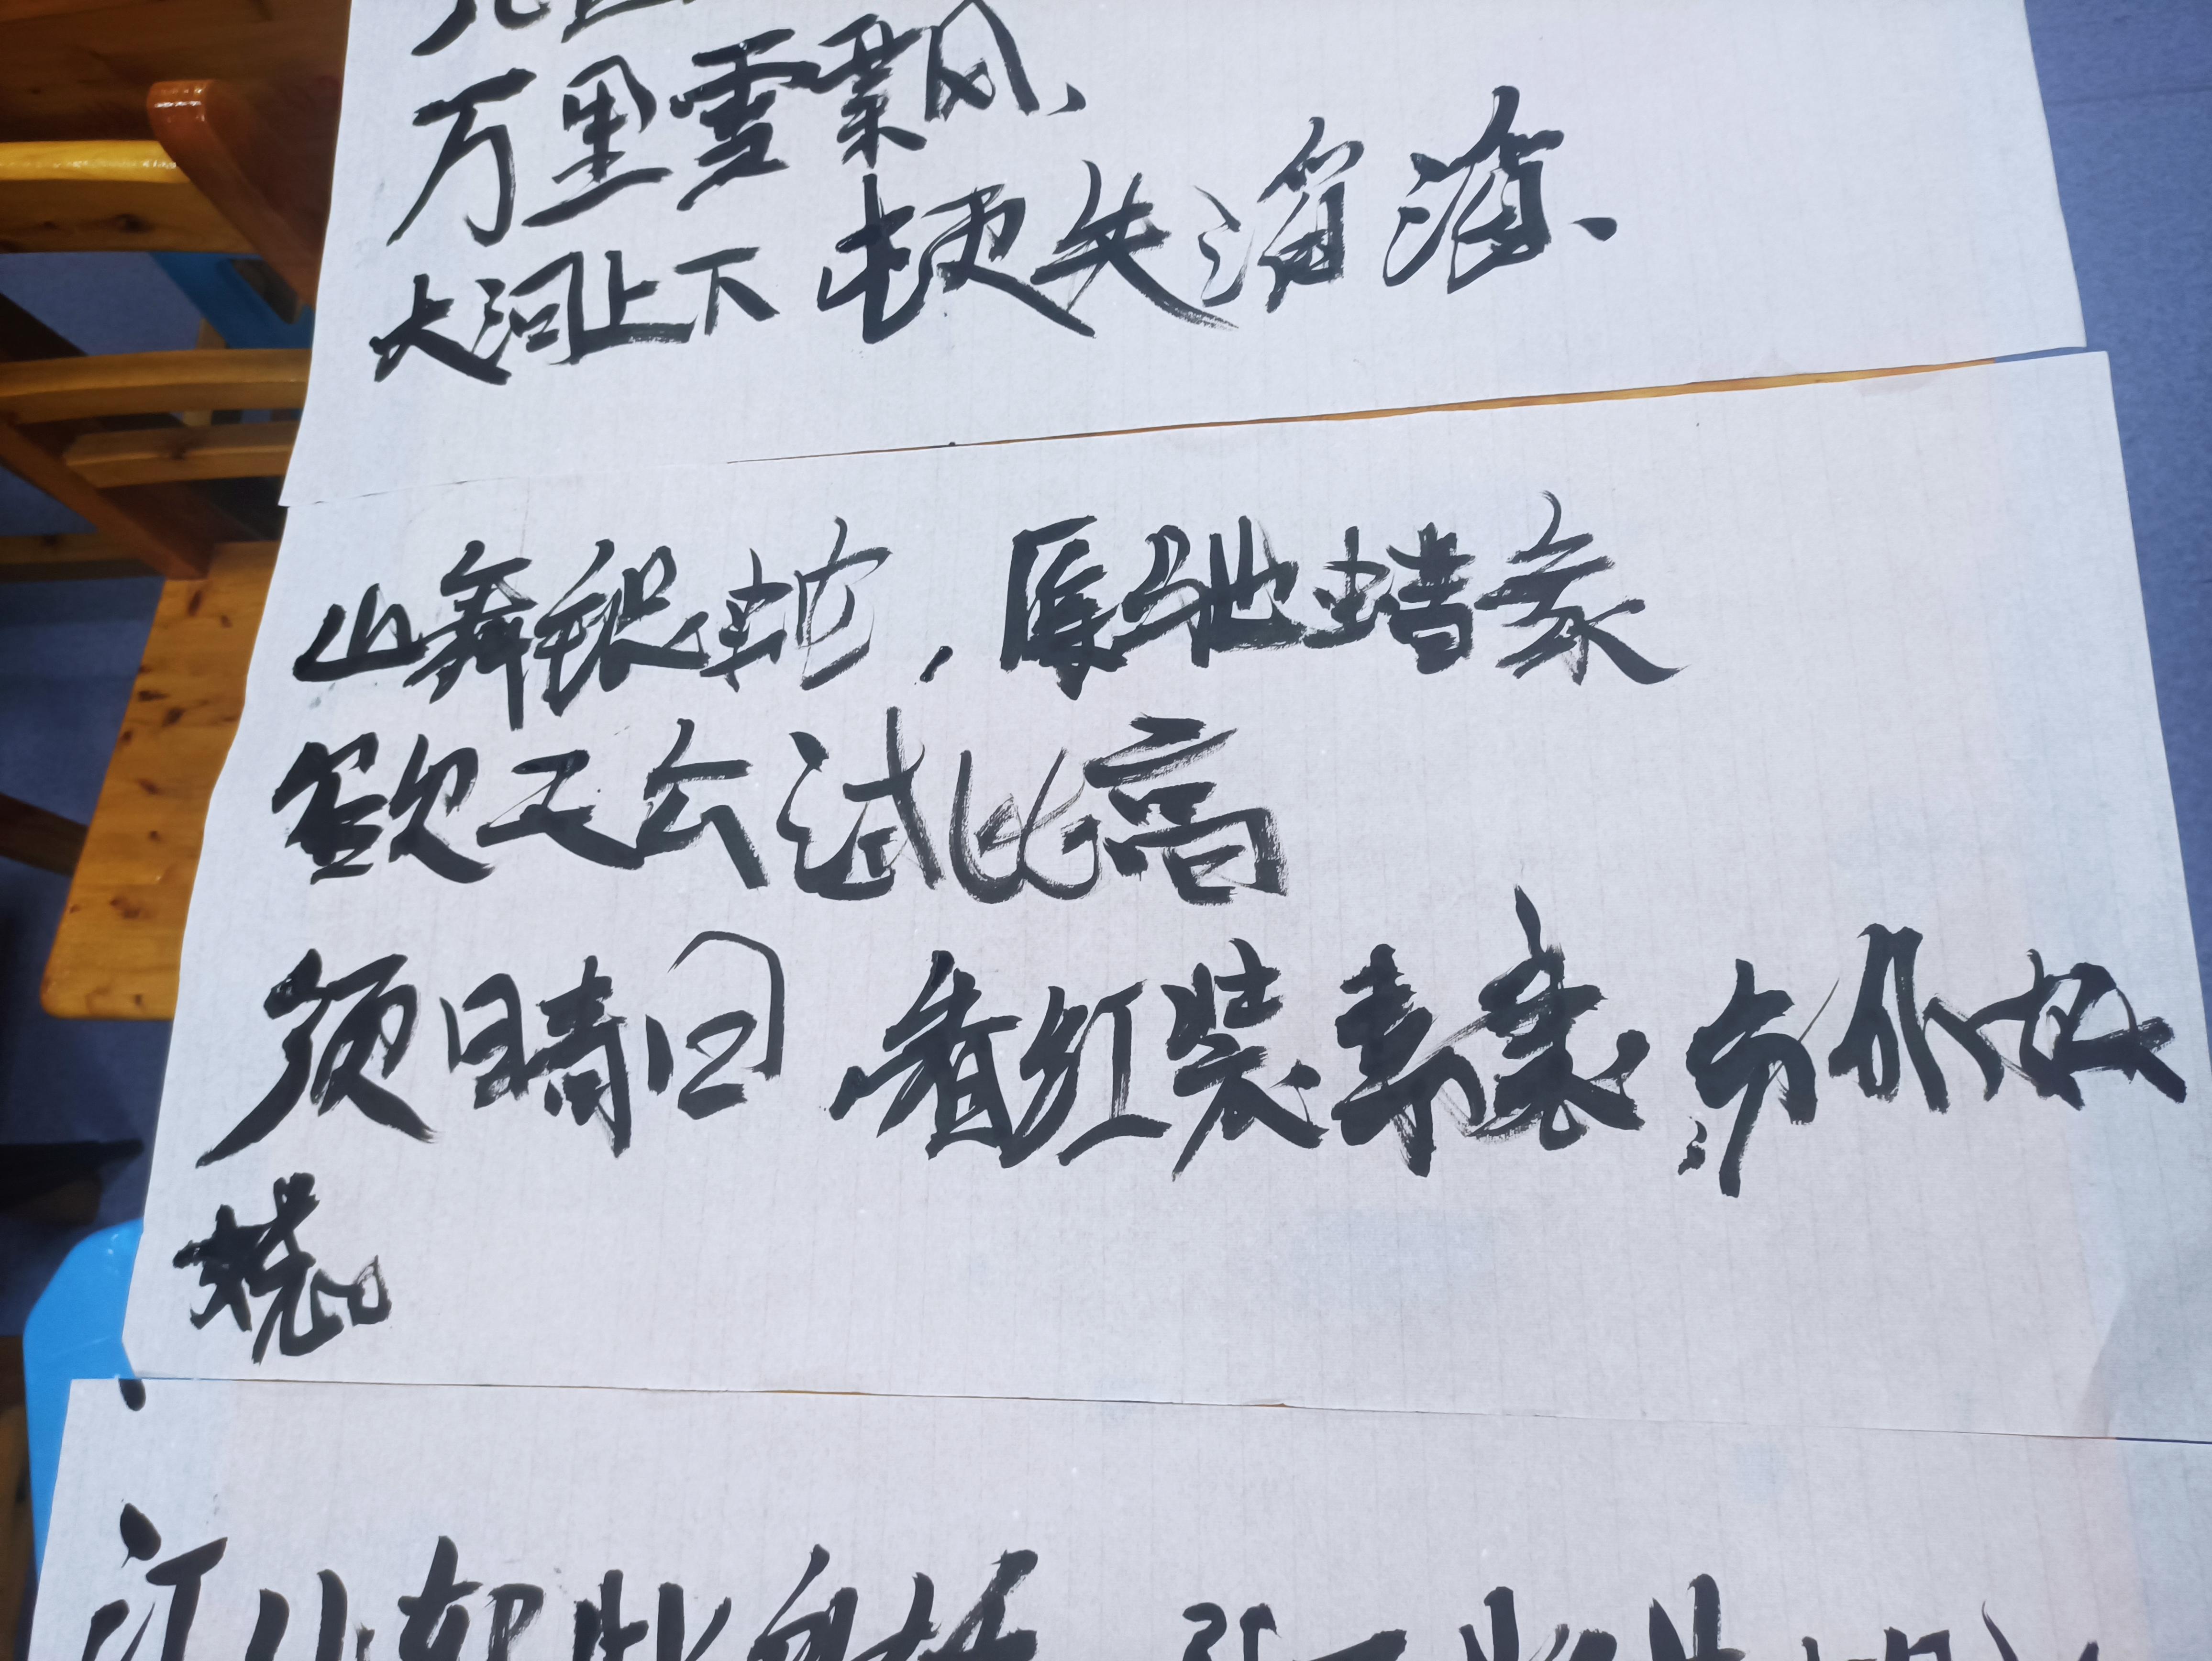 万里雪飘、
大河上下 顿失滔滔、
山舞银蛇，原驰蜡象
欲与天公试比高
须晴日 看红装素裹,分外妖
娆
江山如此多娇